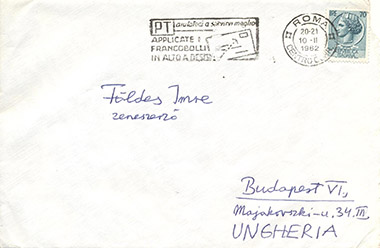 PT aiutateci a servirvi meglio
APPLICATE I
FRANCOBOLLI
IN ALTO A DESTRA
ROMA
20-21
10-II
1962
CENTRO
Földes Imre
zeneszerző
Budapest VI,
Majakovszki-u. 34. III,
UNGHERIA